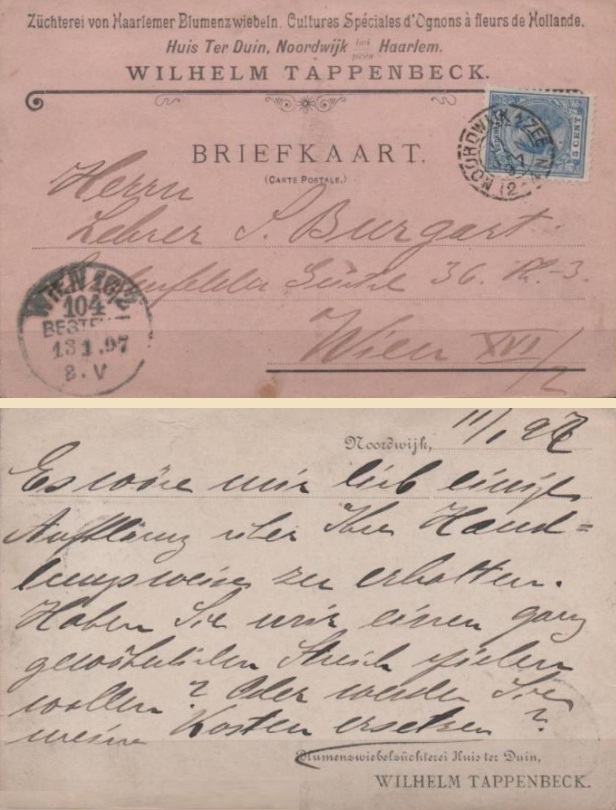 Züchterei von Haarlemer Blumenzwiebeln. Cultures Spéciales d'Ognons à fleurs de Hollande.
Huis Ter Duin, Noordwijk bei près Haarlem.
WILHELM TAPPENBECK.
5 CENT
NOORDWIJK A/ZEE
BRIEFKAART.
(CARTE POSTALE.)
Herrn
Lehrer S. Burgart
Gürtel 36.
Wien XVI/2
WIEN 16/2
104
BESTELLT
13 1.97
8.V
Noordwijk, 11/1 97
Es wäre mir lieb einige
Aufklärung über Ihre Hand=
lungsweise zu erhalten.
Haben Sie mir einen ganz
gewöhnlichen Streich spielen
wollen? Oder werden Sie
meine Kosten ersetzen?
Blumenzwiebelzüchterei Huis ter Duin,
WILHELM TAPPENBECK.